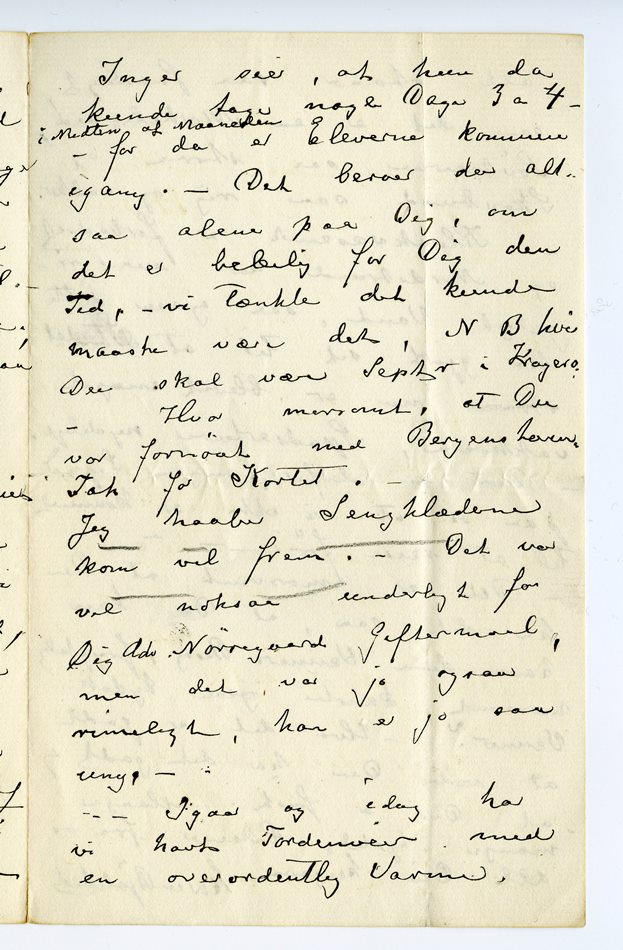 Inger sier, at hun da
kunde tage nogle Dage 3 a 4 –
i Midten af Maaneden
– for da er Eleverne kommen
igang. – Det beroer da alt-
saa alene paa Dig, om
det er beleilig for Dig den
Tid, – vi tænkte det kunde
maaske være det, NB hvis
Du skal være Septbr i Kragerø.
– Hvor morsomt, at Du
var fornöiet med Bergensturen.
Tak for Kortet. –
Jeg haaber Sengklæderne
kom vel frem. – Det var
vel noksaa underligt for
Dig Adv. Nörregaards Giftermaal,
men det var jo ogsaa
rimeligt, han er jo saa
ung. –
--- Igaar og idag har
vi havt Tordenveir med
en overordentlig Varme.